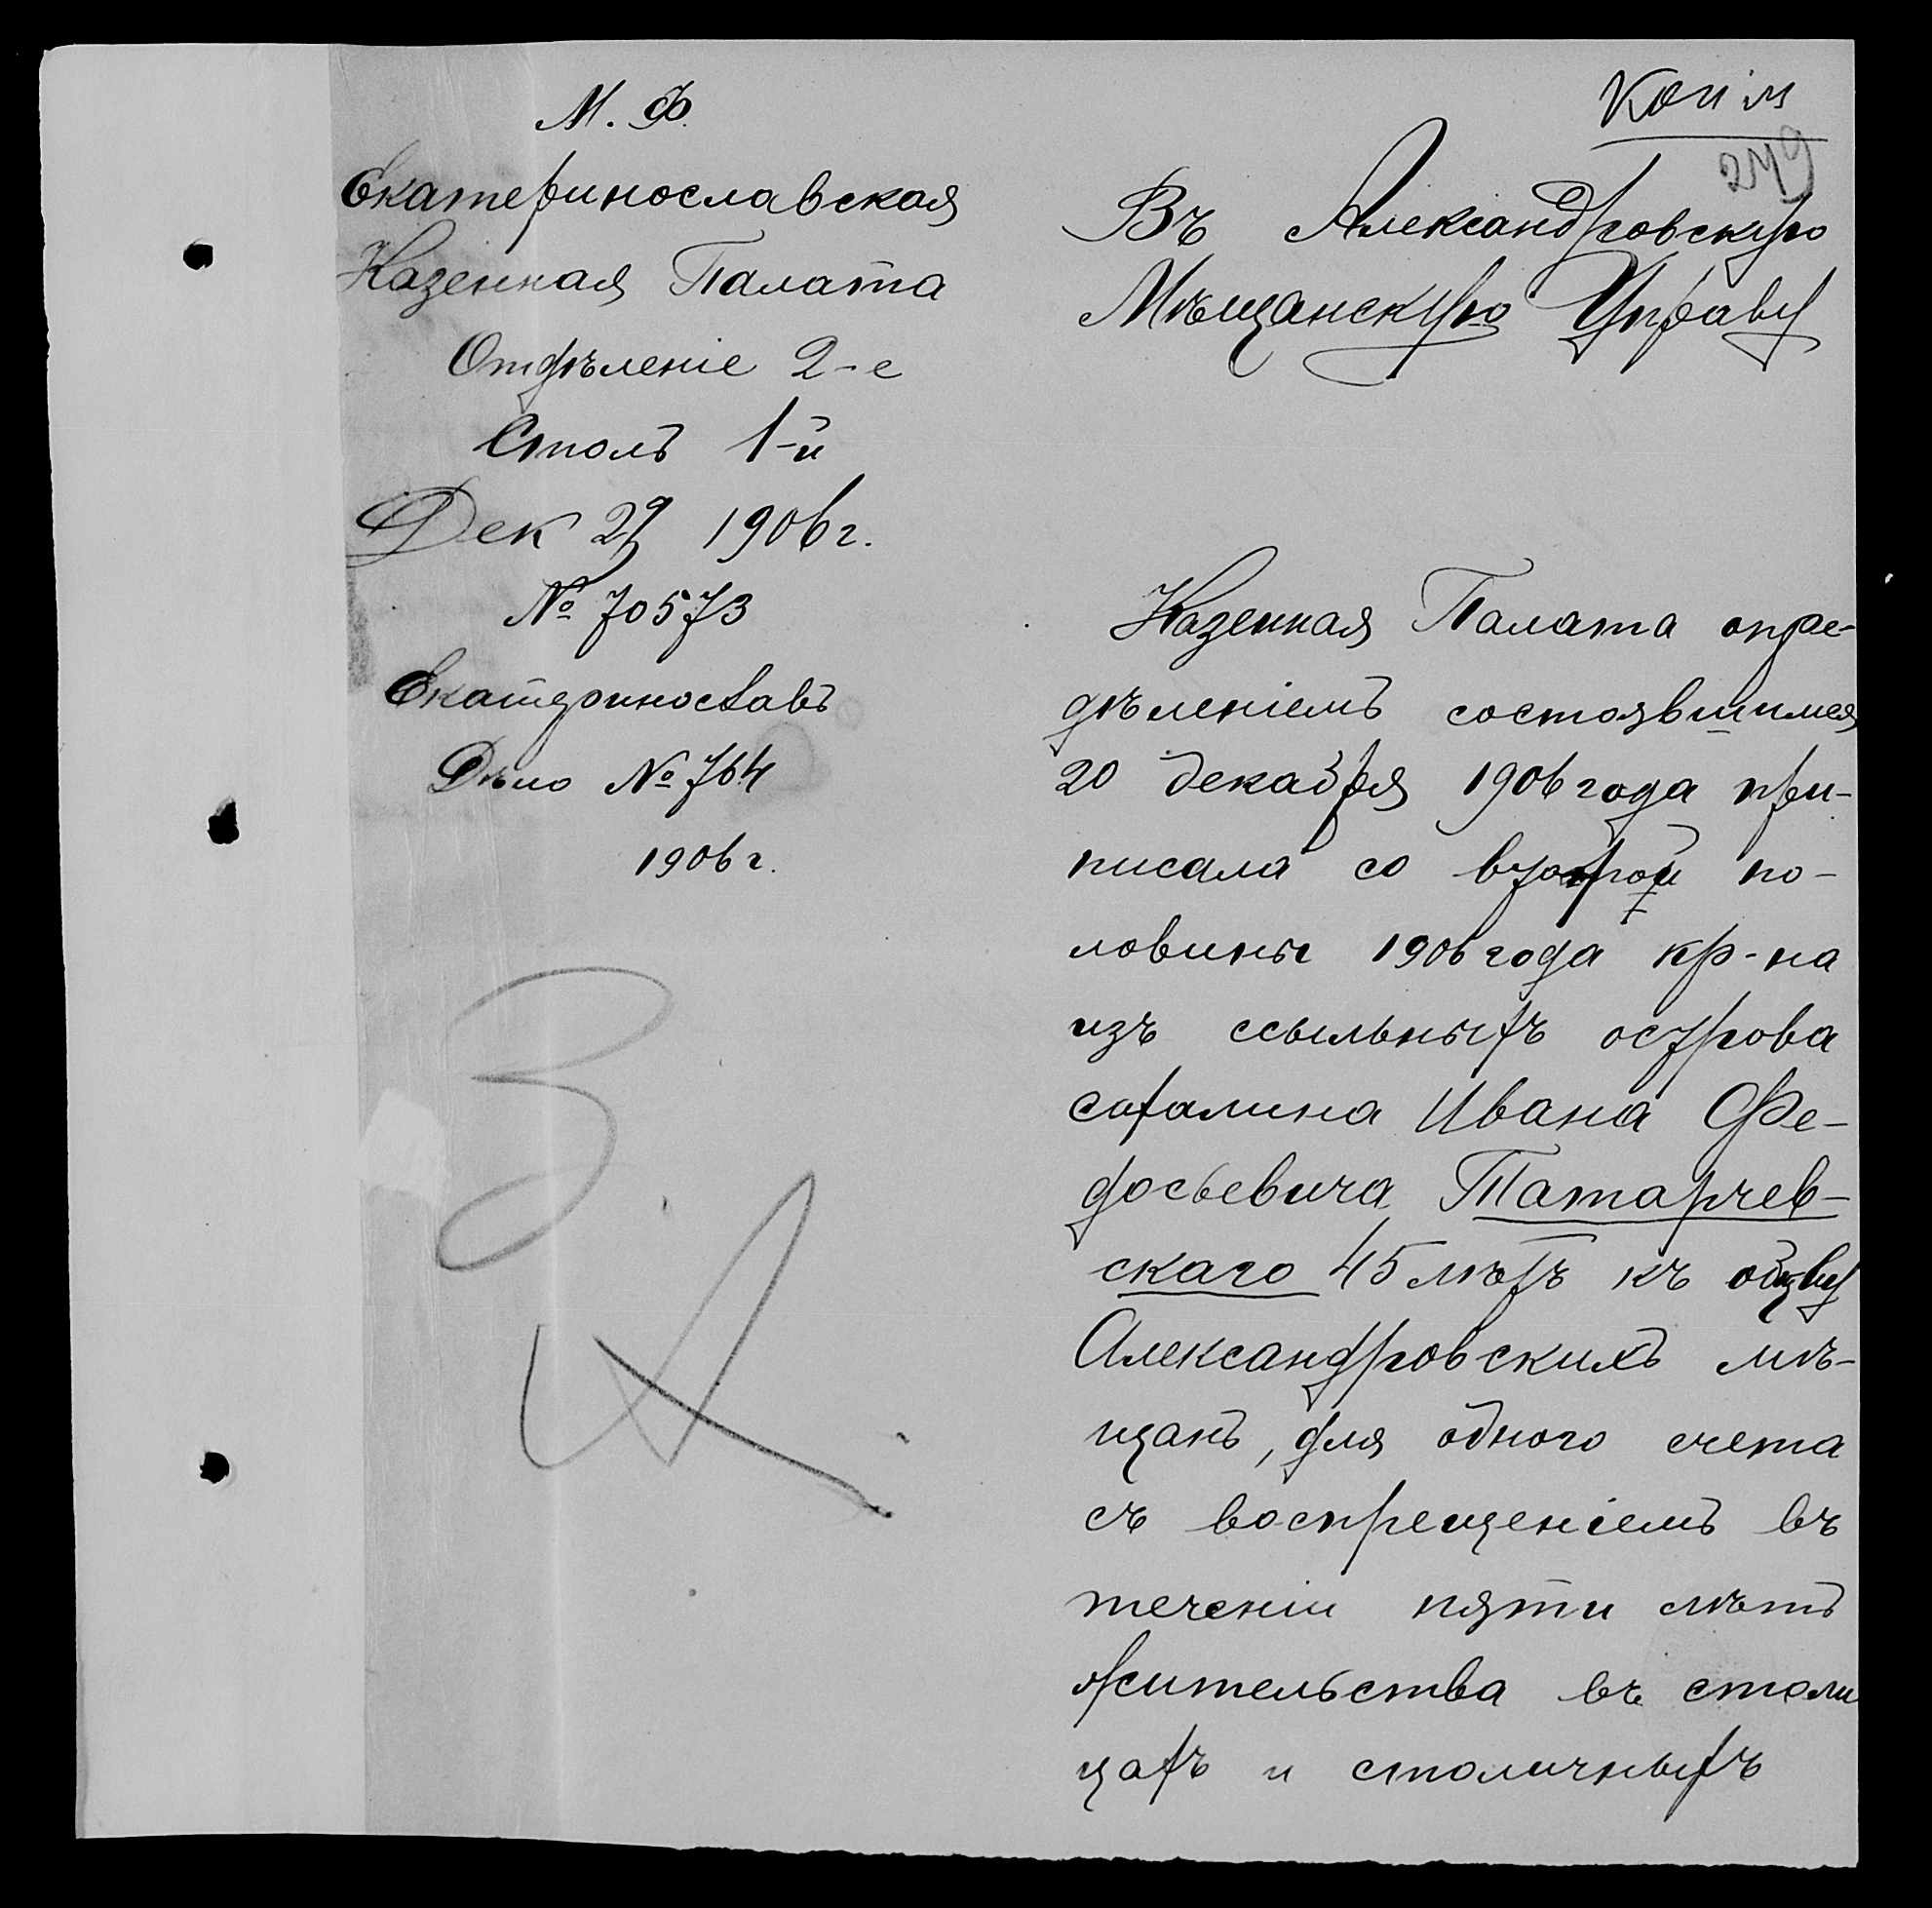 М. Ф.
Екатеринославская
Казенная Палата
Отдѣленіе 2-е
Столъ 1-й
Дек 29 1906 г.
№ 70573
Екатеринославъ
Дѣло № 764
1906 г.
Копія
249
Въ Александровскую
Мѣщанскую Управу
Казенная Палата опре-
дѣленіемъ состоявшимся
20 декабря 1906 года при-
писала со второй по-
ловины 1906 года кр-на
изъ ссыльныхъ острова
сахалина Ивана Фе-
досьевича Татарчев-
скаго 45 лѣтъ къ общву
Александровскихъ мѣ-
щанъ, для одного счета
съ воспрещеніемъ въ
теченіи пяти лѣтъ
жительства въ столи
цахъ и столичныхъ